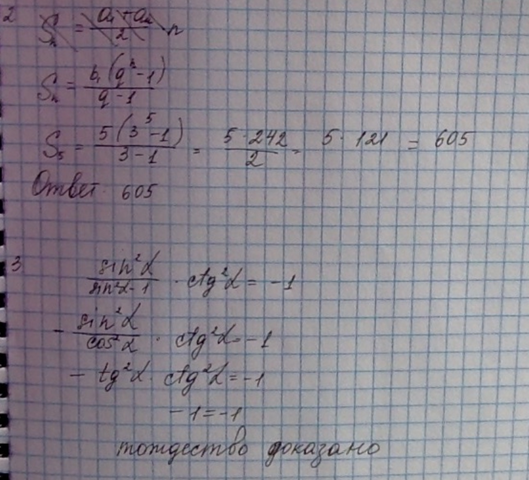 2 Sₙ = (a₁ + aₙ)/2 · n
Sₙ = b₁(qⁿ - 1)/(q - 1)
S₅ = 5(3⁵ - 1)/(3 - 1) = 5 · 242/2 = 5 · 121 = 605
Ответ: 605
3 sin²α/(sin²α - 1) · ctg²α = -1
- sin²α/cos²α · ctg²α = -1
- tg²α · ctg²α = -1
-1 = -1
тождество доказано